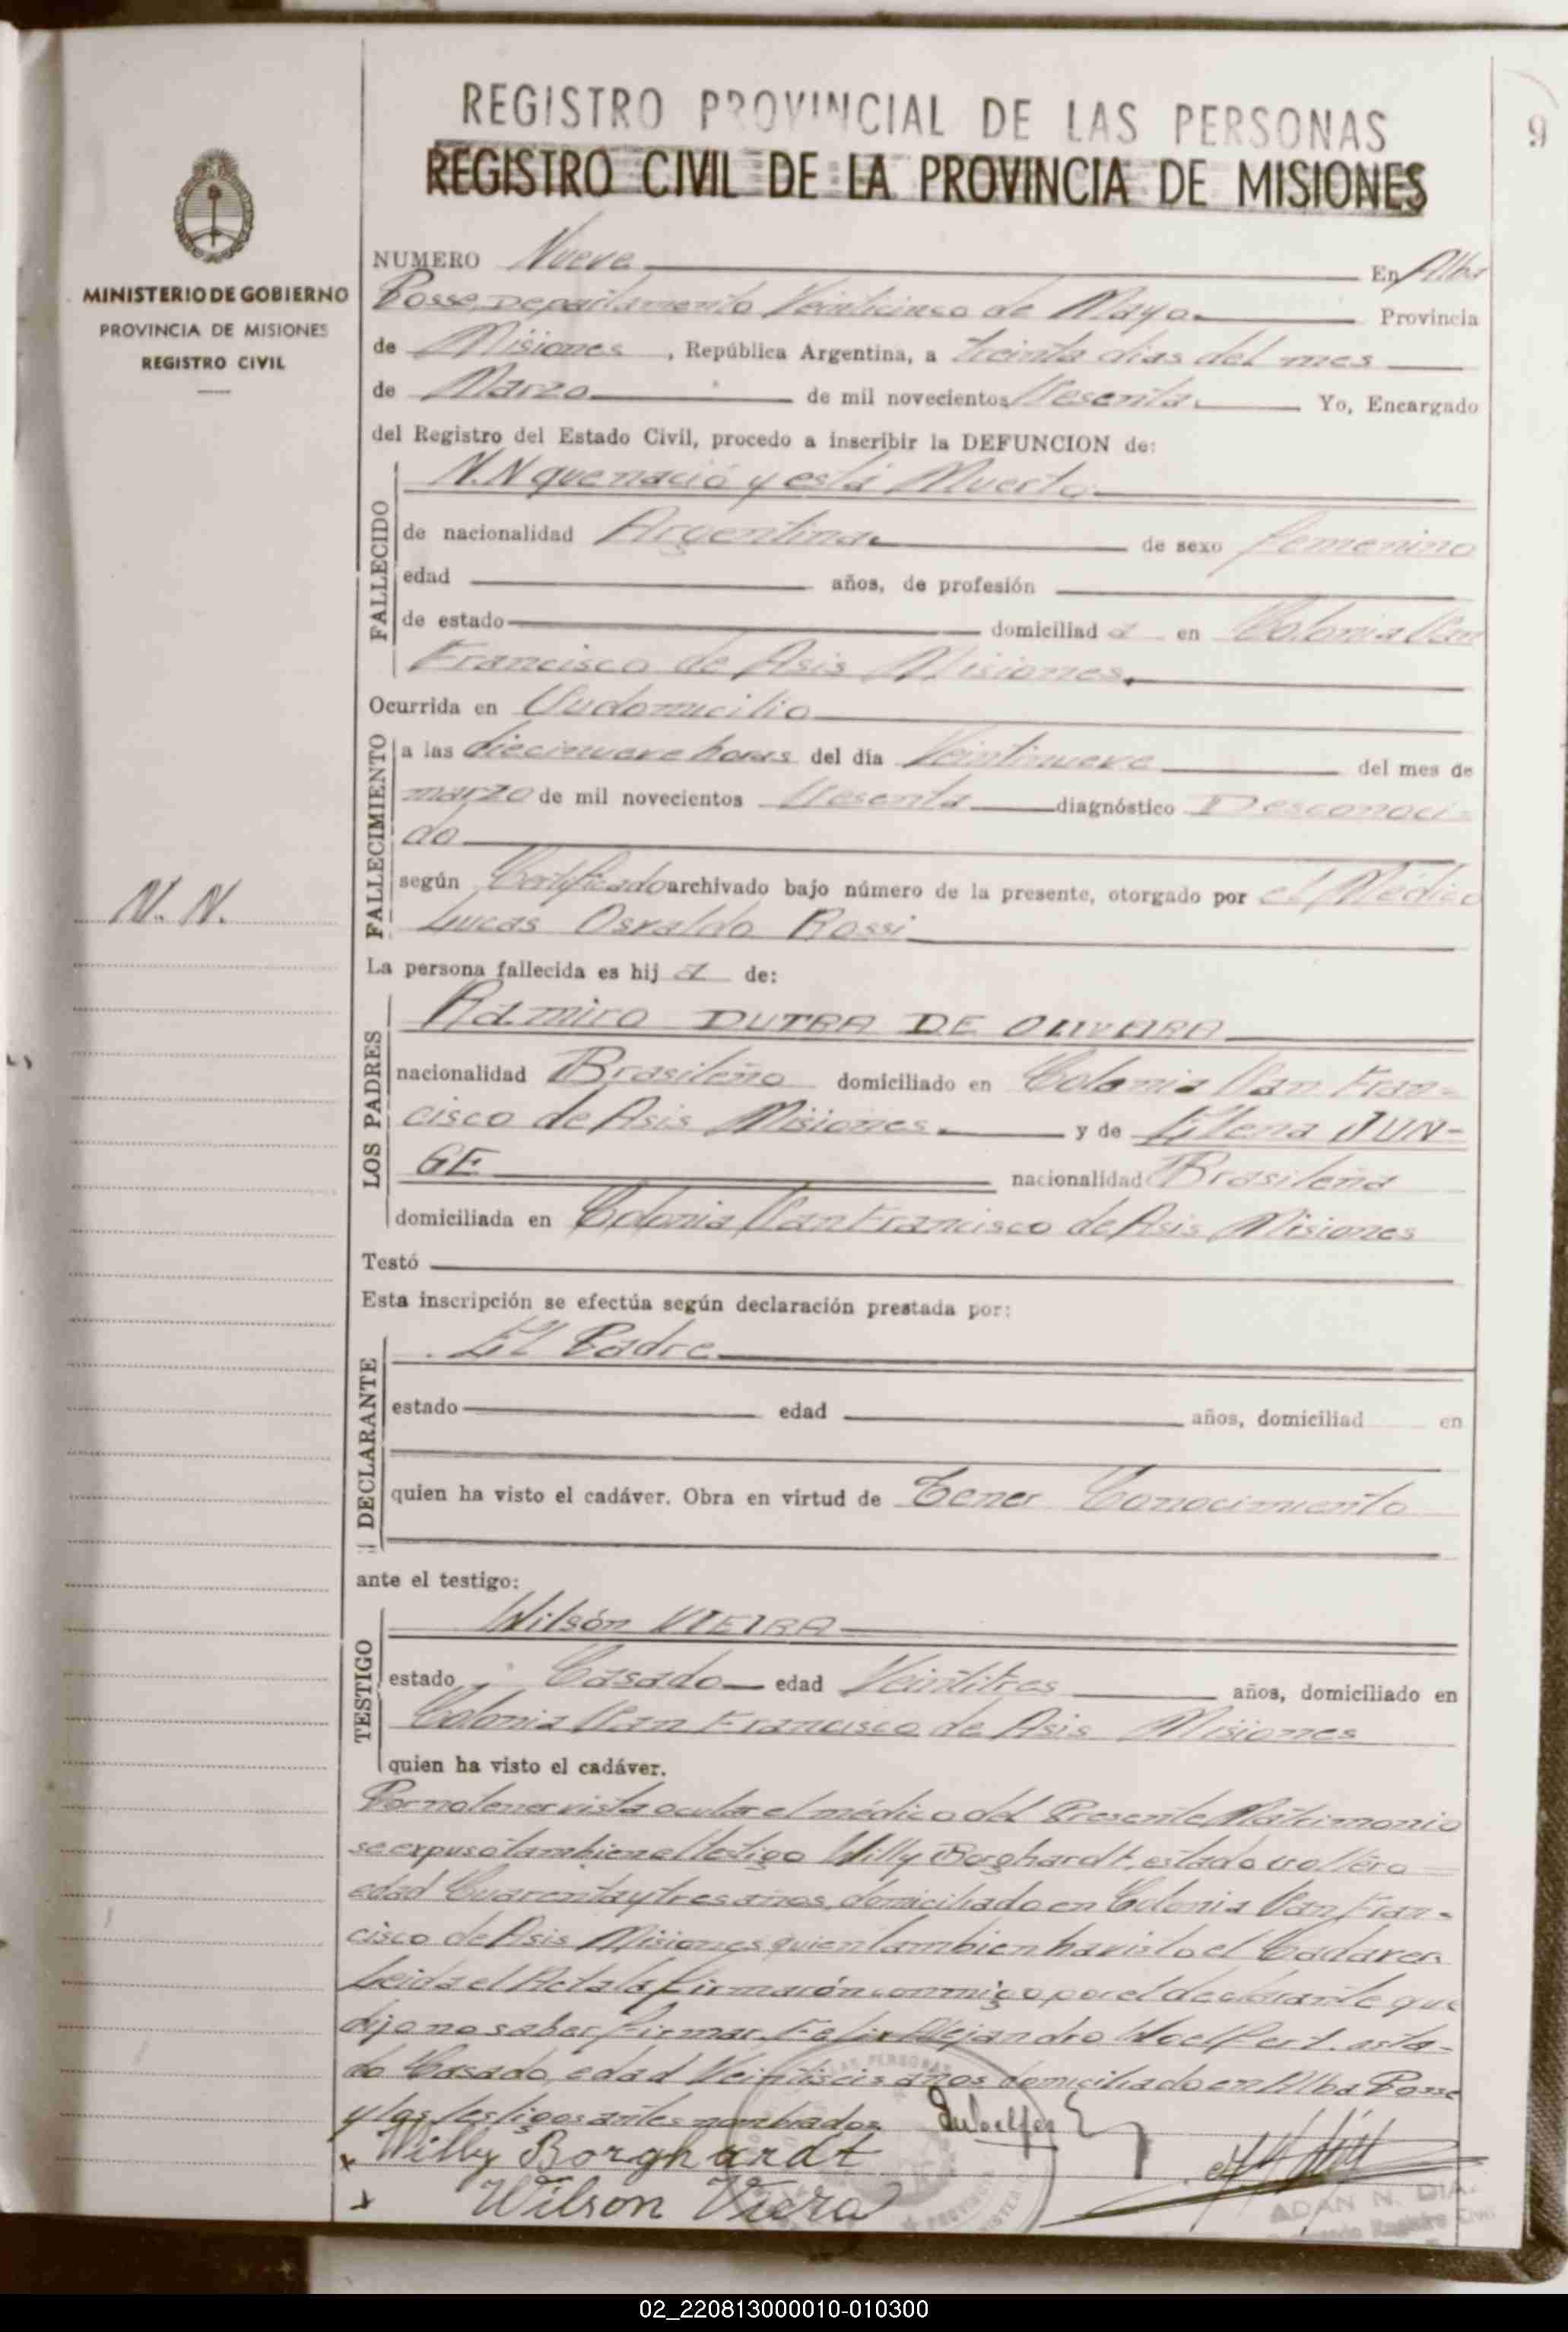 REGISTRO PROVINCIAL DE LAS PERSONAS
REGISTRO CIVIL DE LA PROVINCIA DE MISIONES
9
MINISTERIO DE GOBIERNO
PROVINCIA DE MISIONES
REGISTRO CIVIL
N. N.
NUMERO Nueve En Alba
Posse, Departamento Veinticinco de Mayo Provincia
de Misiones, República Argentina, a treinta dias del mes
de Marzo de mil novecientos Sesenta Yo, Encargado
del Registro del Estado Civil, procedo a inscribir la DEFUNCION de:
N.N que nació y está Muerta
FALLECIDO
de nacionalidad Argentina de sexo femenino
edad años, de profesión
de estado domiciliad a en Colonia San
Francisco de Asis Misiones.
Ocurrida en Su domicilio
FALLECIMIENTO
a las diecinueve horas del día Veintinueve del mes de
marzo de mil novecientos Sesenta diagnóstico Desconoci-
do
según Certificado archivado bajo número de la presente, otorgado por el Médico
Lucas Osvaldo Rossi
La persona fallecida es hij a de:
LOS PADRES
Ramiro DUTRA DE OLIVEIRA
nacionalidad Brasileño domiciliado en Colonia San Fran-
cisco de Asis Misiones y de Elena JUN-
GE nacionalidad Brasileña
domiciliada en Colonia San Francisco de Asis Misiones
Testó
Esta inscripción se efectúa según declaración prestada por:
El Padre
DECLARANTE
estado edad años, domiciliad en
quien ha visto el cadáver. Obra en virtud de Tener Conocimiento
ante el testigo:
Wilsón VIEIRA
TESTIGO
estado Casado edad Veintitres años, domiciliado en
Colonia San Francisco de Asis Misiones
quien ha visto el cadáver.
Por no tener vista ocular el médico del Presente Matrimonio
se expuso tambien el testigo Willy Borghardt, estado soltero
edad Cuarenta y tres años, domiciliado en Colonia San Fran-
cisco de Asis Misiones quien tambien ha visto el Cadaver.
Leida el Acta la firmarón conmigo por el declarante que
dijo no saber firmar, Felix Alejandro Woelfert. esta-
do Casado, edad Veintiseis años domiciliado en Alba Posse
y los testigos antes nombrados
Willy Borghardt
Wilson Viera
ADAN N. DIA
Registro Civil
02_220813000010-010300